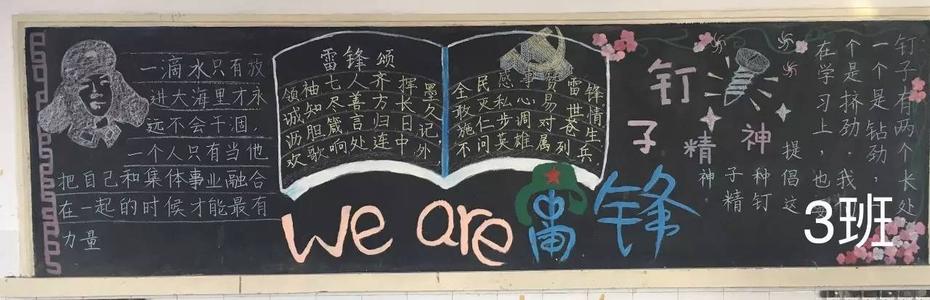 一滴水只有放
进大海里才永
远不会干涸，
一个人只有当他
把自己和集体事业融合
在一起的时候才能最有
力量
雷锋颂
领袖七人齐挥墨
诚知尽善方长久
沥胆箴言归日记，
欢歌响处连中外
全民感事雷锋
敢灭私心易世情
施仁步调对苍生
不问英雄属列兵
We are 雷锋
钉子精神
钉子有两个长处
一个是钻劲，
个是挤劲.我
在学习上，也
提倡这
种钉
子精
神
3班